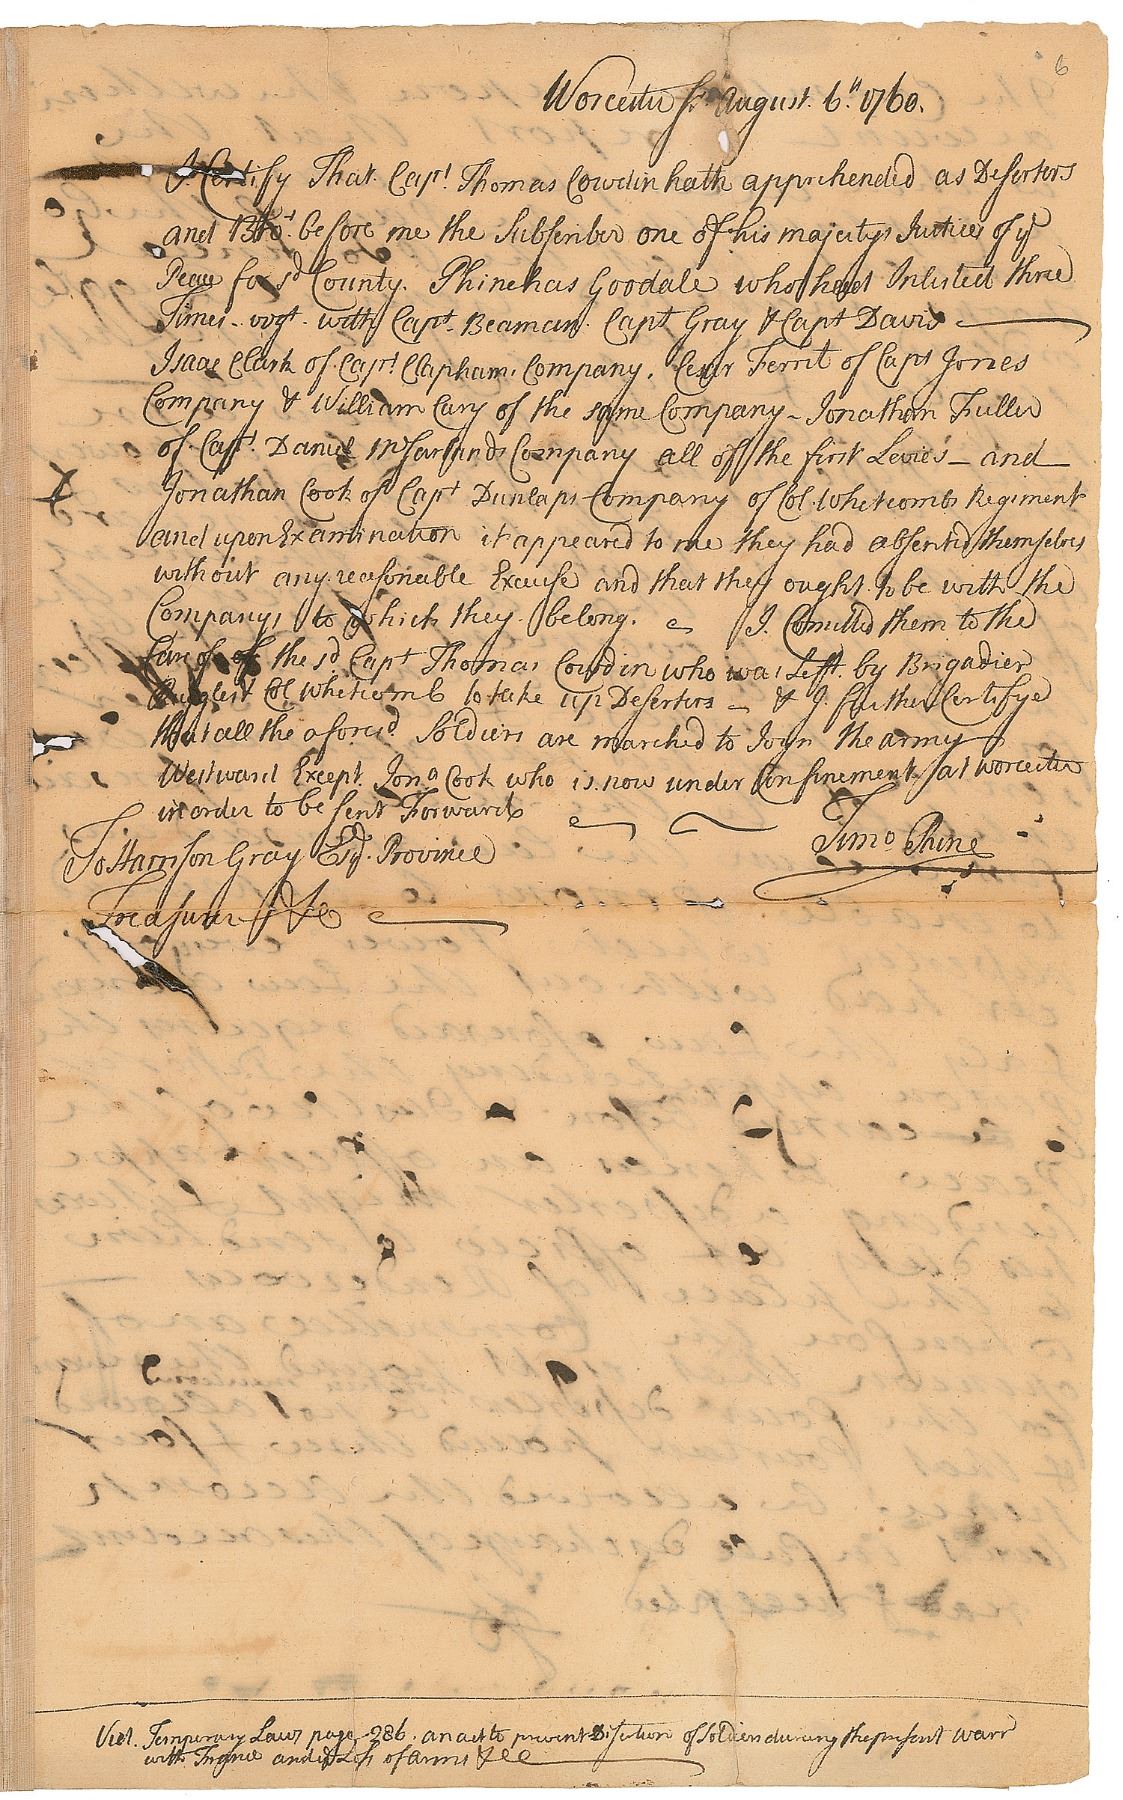 6
Worcester ss August. 6th. 1760.
I Certify That Capt Thomas Cowdin hath apprehended as Desertors
and Brot before me the Subscriber one of his majestys Justices of ye
Peace for sd County. Phinehas Goodale who had Inlisted three
Times. vizt. with Capt. Beaman. Capt Gray & Capt Davis
Isaac Clark of Capt Clapham. Company. Cesar Ferrit of Capt Jones
Company & William Cary of the same Company - Jonathan Fuller
of Capt. Daniel McFarlands Company all of the first Levies - and
Jonathan Cook of Capt Dunlaps Company of Col. Whetcombs Regiment
and upon Examination it appeared to me they had absented themselves
without any reasonable Excuse and that they ought to be with the
Companys to which they belong. I Comitted them to the
Care of the sd Capt Thomas Cowdin who was Left by Brigadier
Ruggles & Col Whetcomb to take up Desertors - & I further Certifye
that all the aforesd Soldiers are marched to Joyn the army
Westward Except Jona Cook who is now under Confinement at Worcester
in order to be sent Forward
To Harrison Gray Esqr. Province Timo Paine
Treasurer &c
Vid. Temporary Laws page 286. an act to prevent Desertion of Soldiers during the present Warr
with France and Loss of arms &c